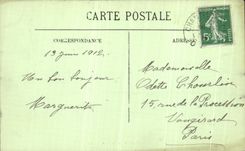 CARTE POSTALE
CORRESPONDANCE
ADRESSE
13 juin 1912.
Un bon bonjour
Marguerite
Mademoiselle
Odette
15, rue de la Procession
Vaugirard
Paris